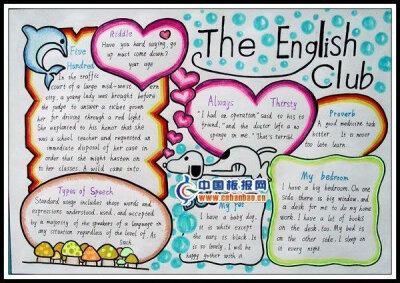 The English
Club
Riddle
Have you hard saying, go
up must come down?
your age
Five
Hundred
In the traffic
court of a large mid-western
city, a young lady was brought before
the judge to answer a ticket given
her for driving through a red light.
She explained to his honor that she
was a school teacher and requested an
immediate disposal of her case in
order that she might hasten on
to her classes. A wild came into
Always Thirsty
"I had an operation" said to his
friend," and the doctor left a
sponge in me." "That's terrible
Proverb
A good medicine tack
better. It is never
too late learn.
Types of Speech
Standard usage includes those words and
expressions understood, used, and accepted
by a majority of the speakers of a language in
any situation regardless of the level of. As
Such,
中国板报网
www.cnbanbao.cn
My pet
I have a baby dog.
it is white except
the ears black. It
is so lovely. I will be
happy gother with it
My bedroom
I have a big bedroom. On one
side there is big window, and
a desk for me to do my home
work. I have a lot of books
on the desk, too. My bed is
on the other side. I sleep on
it every night.